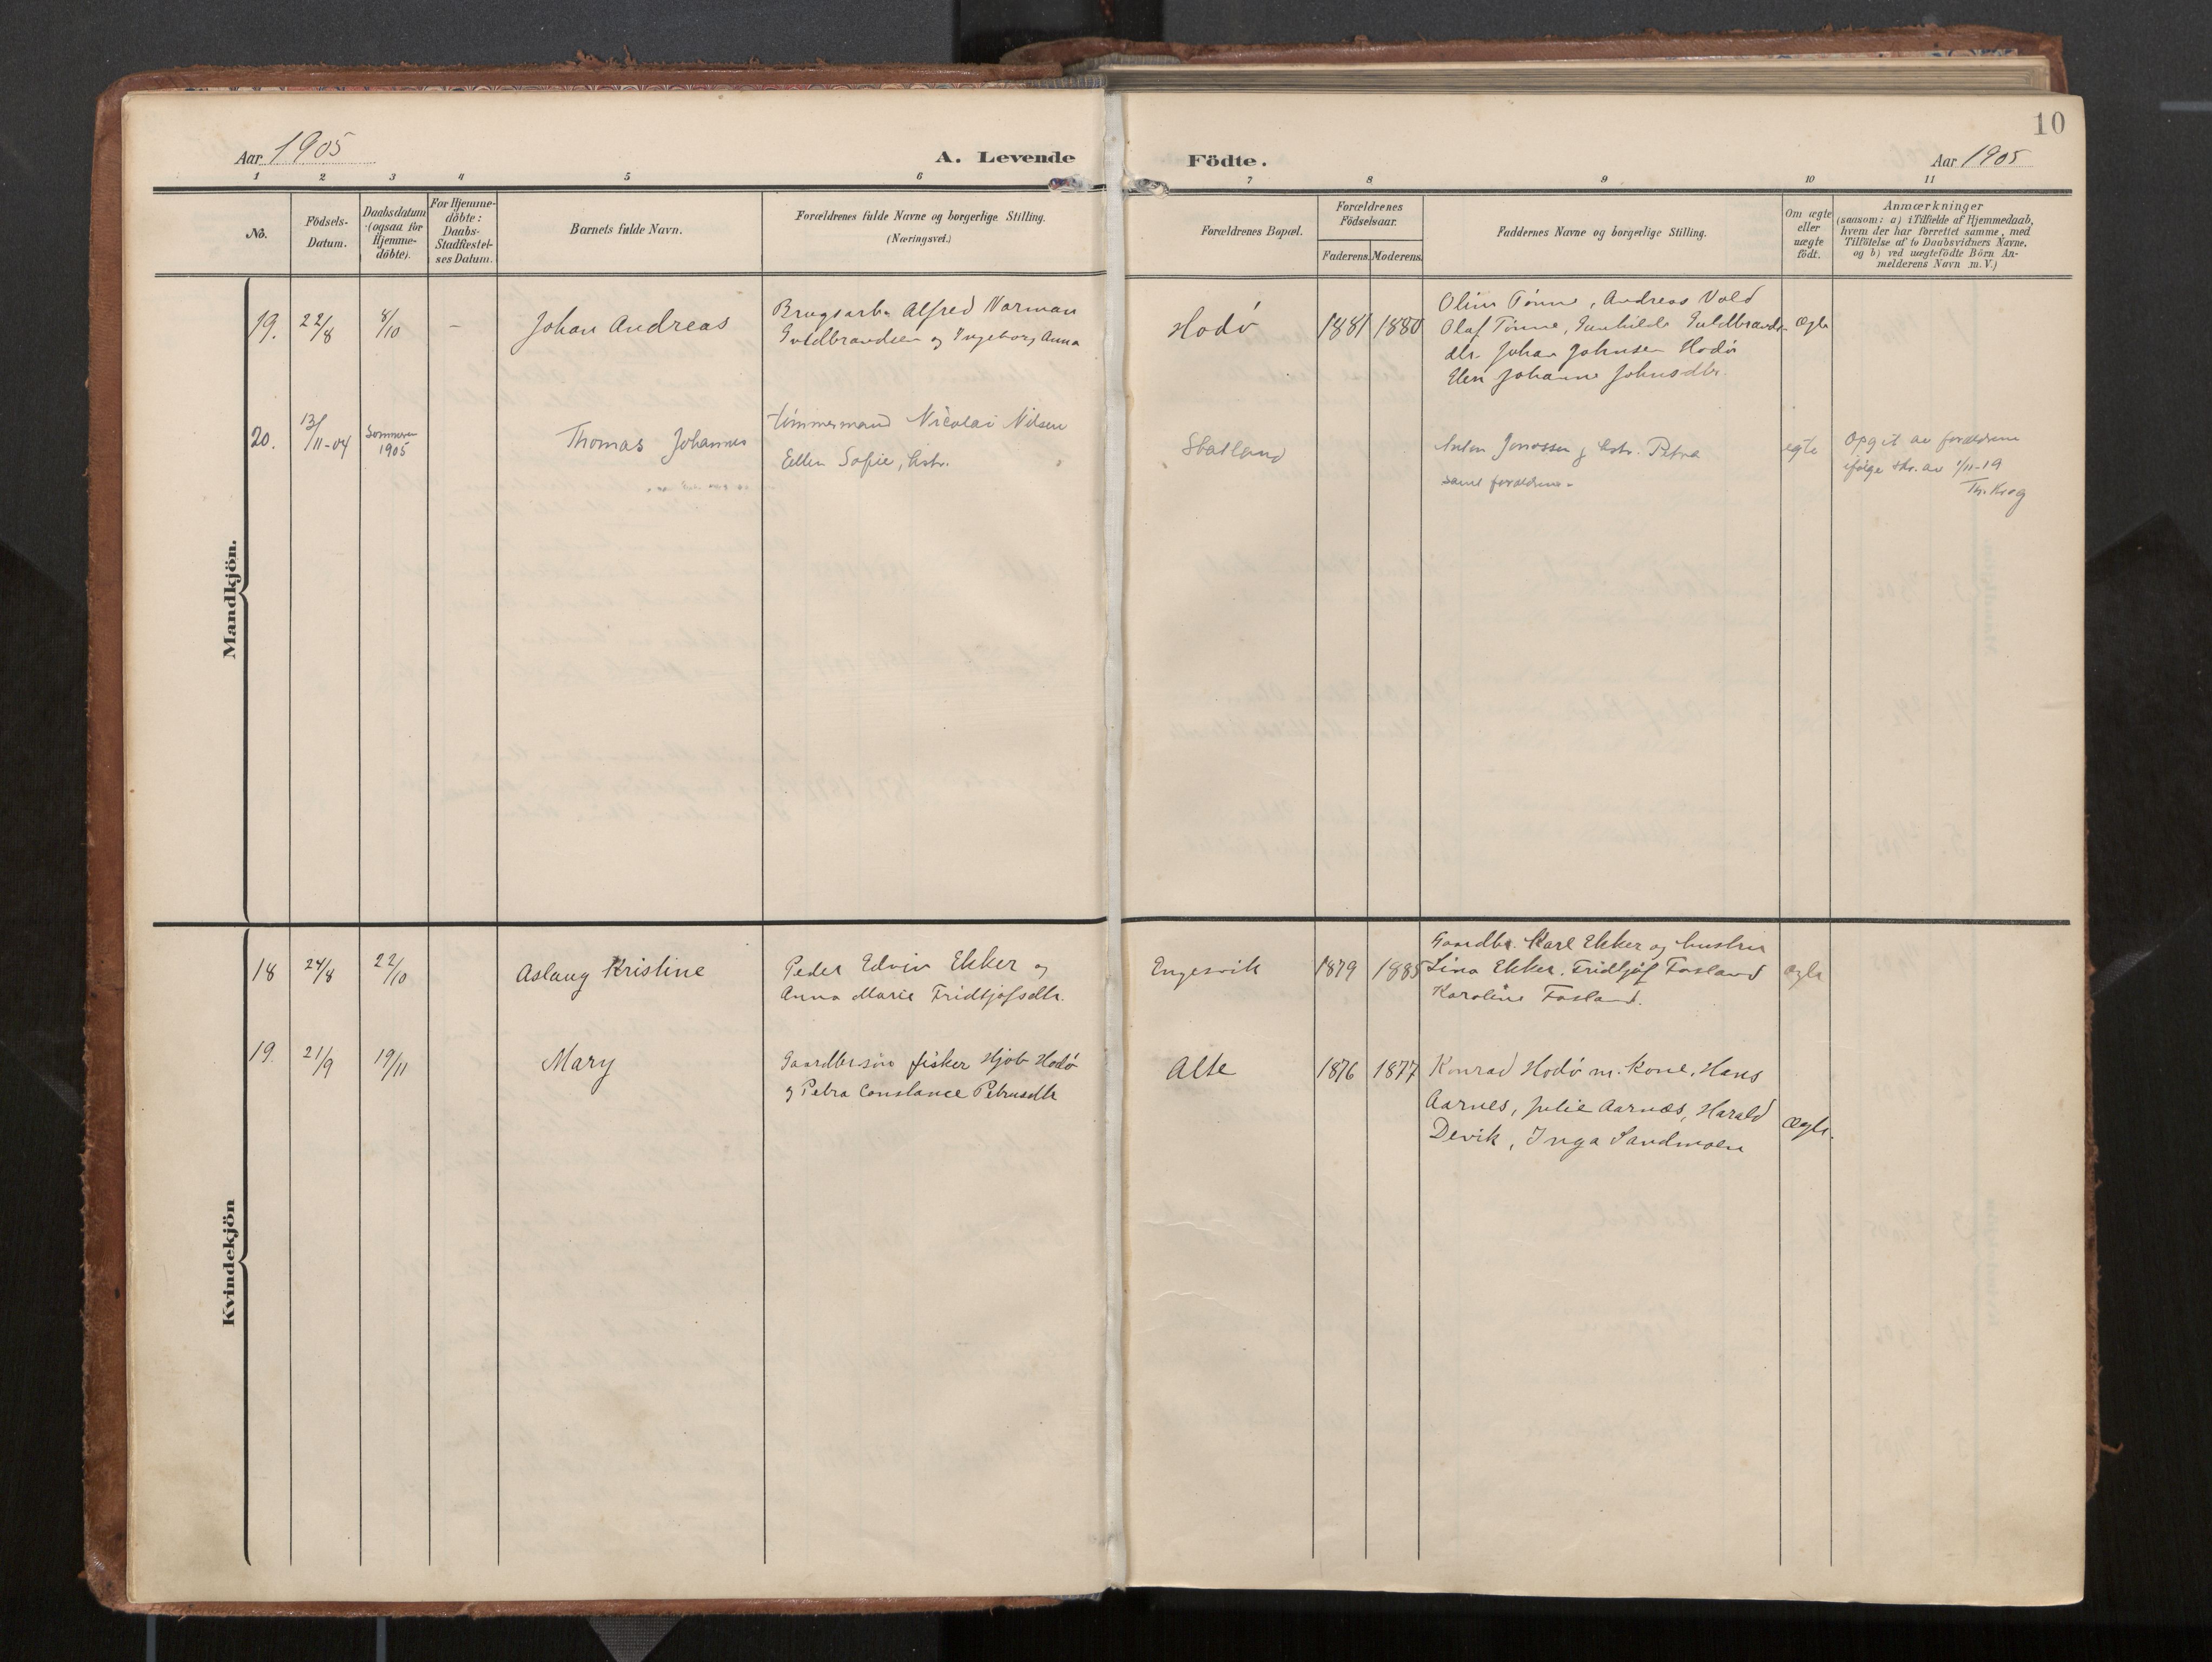 10
Aar 1905
A. Levende
Födte.
Aar 1905
1 2 3 4 5 6 7 8 9 10 11
No.
Födsels-
Datum.
Daabsdatum
(ogsaa for
Hjemme-
döbte).
For Hjemme-
döbte:
Daabs-
Stadfæstel-
ses Datum.
Barnets fulde Navn.
Forældrenes fulde Navne og borgerlige Stilling.
(Næringsvei.)
Forældrenes Bopæl.
Forældrenes
Födselsaar.
Faderens. Moderens.
Faddernes Navne og borgerlige Stilling.
Om ægte
eller
uægte
födt.
Anmærkninger
(saasom: a) i Tilfælde af Hjemmedaab,
hvem der har forrettet samme, med
Tilföielse af to Daabsvidners Navne,
og b) ved uægtefödte Börn An-
melderens Navn m. V.)
Mandkjön.
19. 22/8 8/10 – Johan Andreas
Brugsarb. Alfred Norman
Guldbrandsen og Ingeborg Anna
Hodö 1881 1880
Oline Tönne, Andreas Vold
Olaf Tönne, Gunhilde Guldbrands-
dtr. Johan Johnsen Hodö
Elen Johanne Johnsdtr.
Ægte
20. 13/11-04 Sommeren
1905
Thomas Johannes
tömmermand Nicolai Nilsen
Ellen Sofie, hstr.
Statland
Anton Jonassen & hstr. Petra
samt forældrene.
egte
Opgit av forældrene
ifölge skr. av 1/11-19
Th. Krog
Kvindekjön
18 24/8 22/10 Aslaug Kristine
Peder Edvin Ekker og
Anna Marie Fridtjofsdtr.
Engesvik 1879 1885
Gaardbr. Karl Ekker og hustru
Lina Ekker. Fridtjof Fosland
Karoline Fosland.
ægte
19. 21/9 19/11 Mary
Gaardbrsön fisker Hjob Hodö
og Petra Constance Petrusdtr
Alte 1876 1877
Konrad Hodö m. Kone, Hans
Aarnes, Julie Aarnæs, Harald
Devik, Inga Sandmoen
Ægte.